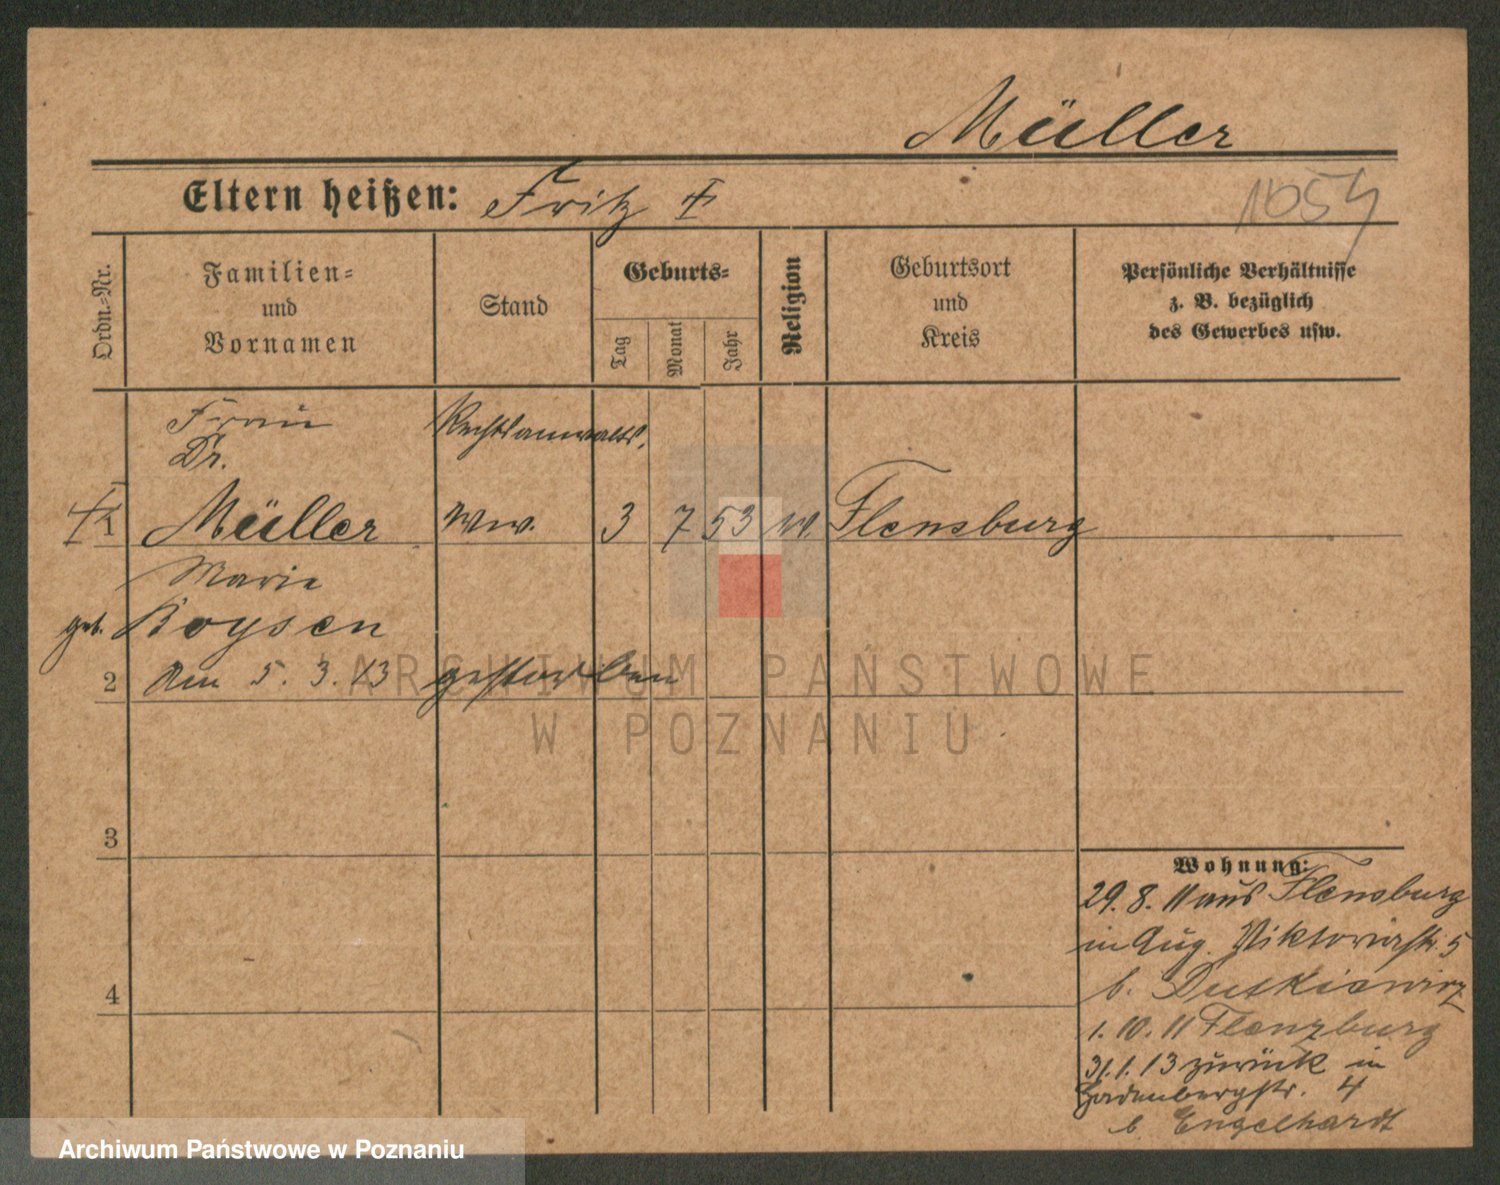 Müller
Eltern heißen: Fritz ‡
1054
Ordn.-Nr.
Familien-
und
Vornamen
Stand
Geburts-
Tag
Monat
Jahr
Religion
Geburtsort
und
Kreis
Persönliche Verhältnisse
z. B. bezüglich
des Gewerbes usw.
Frau
Dr.
Rechtsanwalts.
‡ 1 Müller Ww. 3 7 53 Flensburg
Marie
geb. Boysen
2 Am 5. 3. 13 gestorben
ARCHIWUM PAŃSTWOWE
W POZNANIU
3
4
Wohnung:
29. 8. 11 aus Flensburg
in Aug. Viktoriastr. 5
b. Dutkiewicz
1. 10. 11 Flenzburg
31. 1. 13 zurück in
4
b. Engelhardt
Archiwum Państwowe w Poznaniu